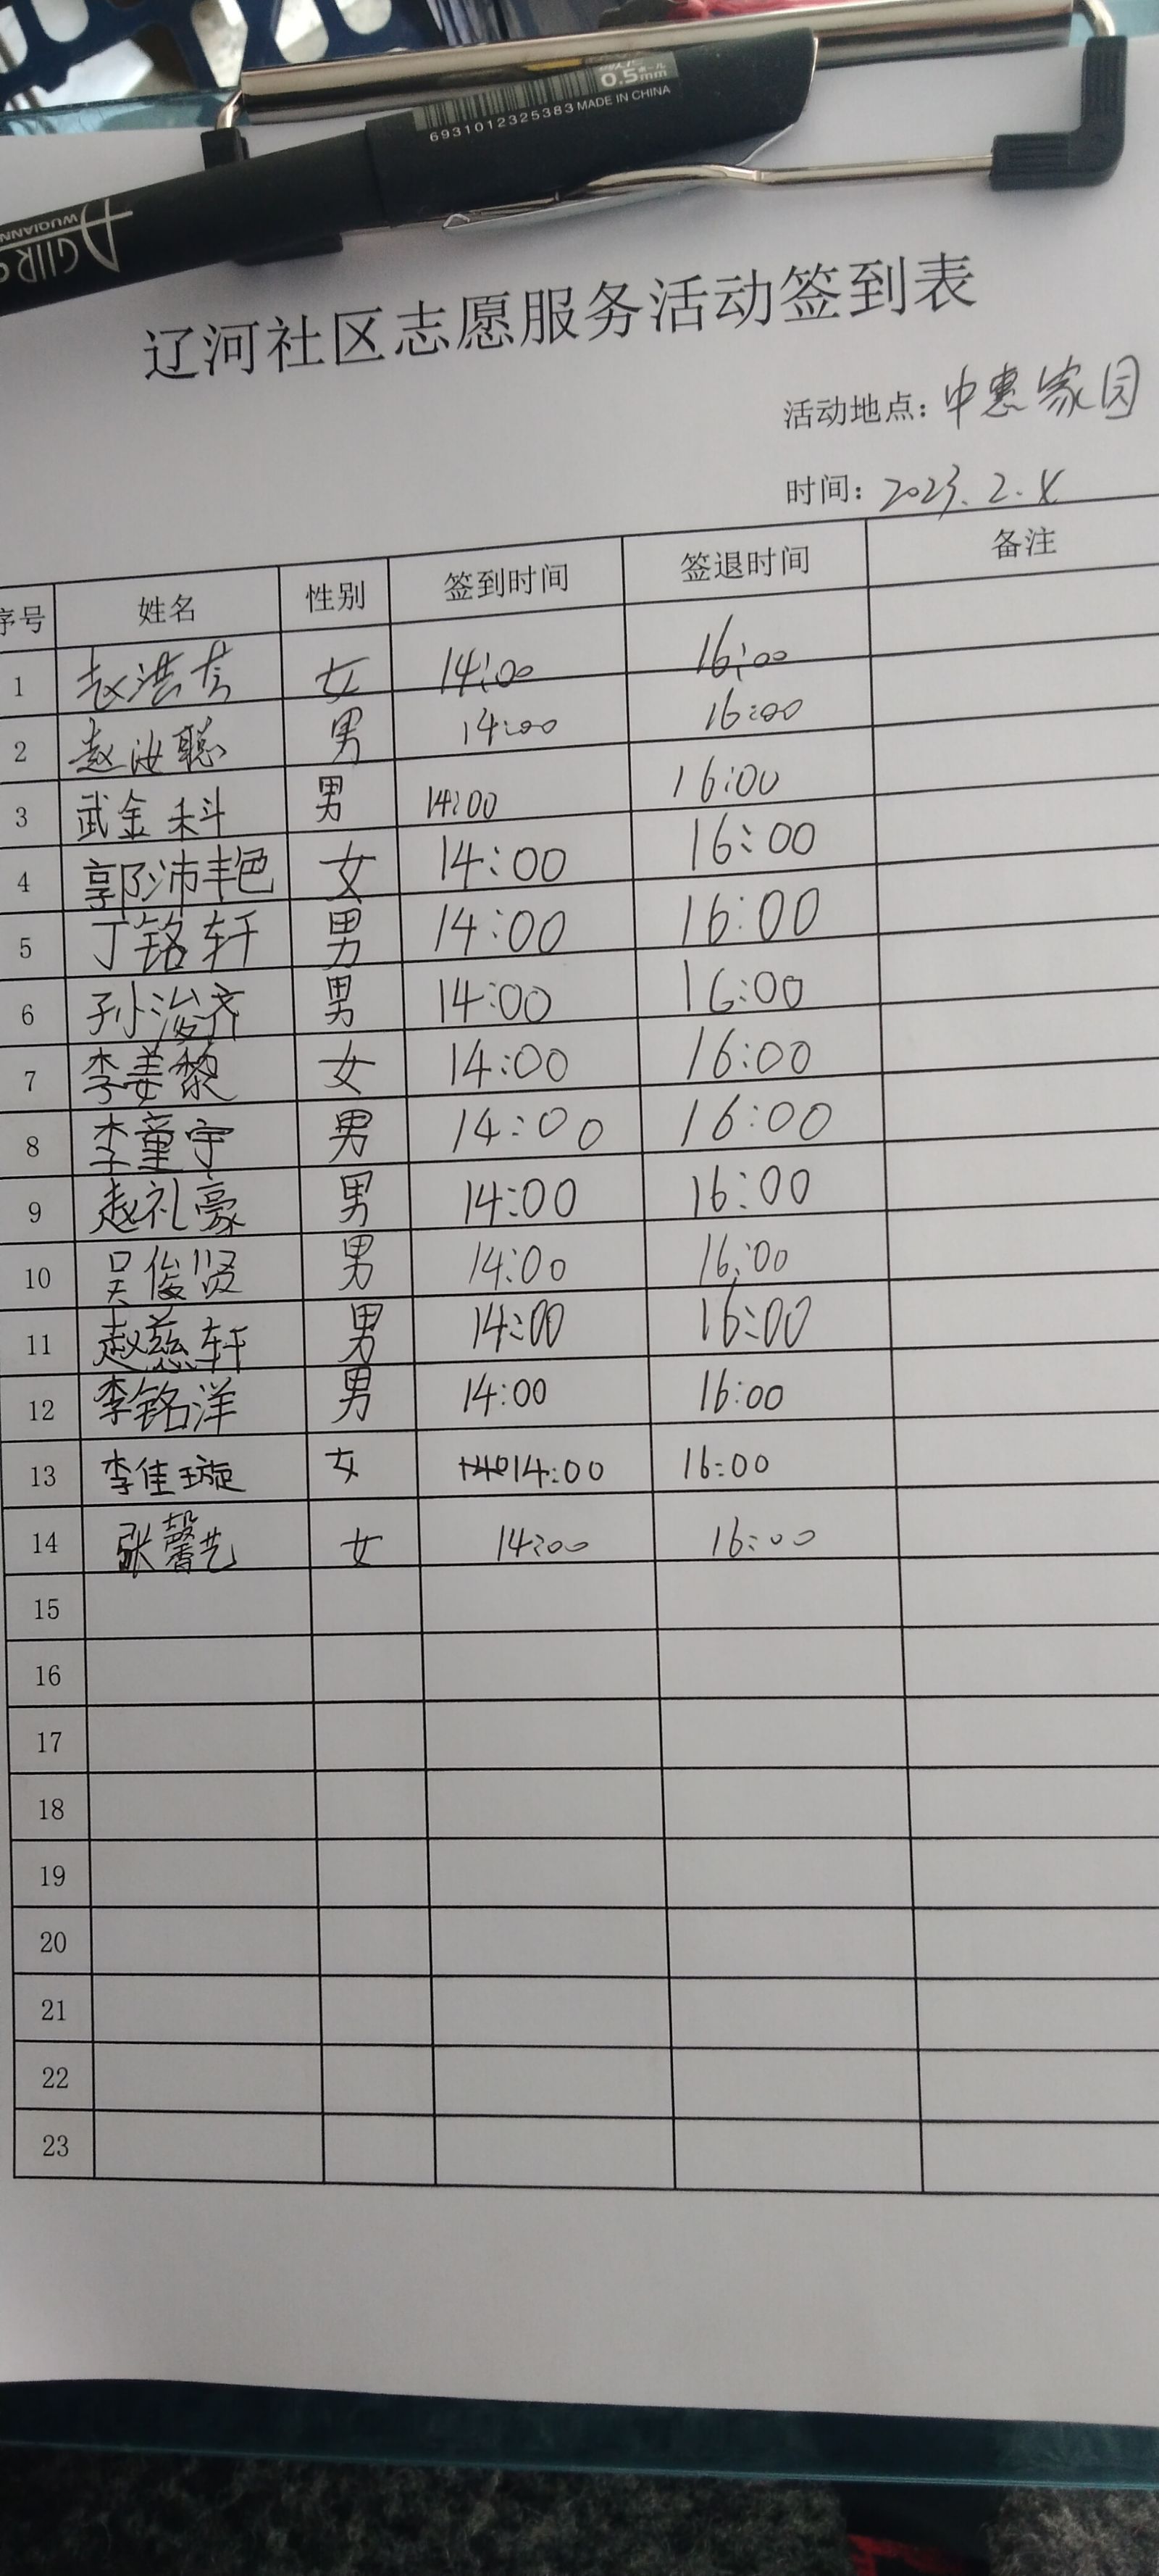 0.5mm
6931012325383 MADE IN CHINA
辽河社区志愿服务活动签到表
活动地点: 中惠家园
时间: 2023.2.8
序号 姓名 性别 签到时间 签退时间 备注
1 赵洪芳 女 14:00 16:00
2 赵汝聪 男 14:00 16:00
3 武金科 男 14:00 16:00
4 郭沛艳 女 14:00 16:00
5 丁铭轩 男 14:00 16:00
6 孙浚齐 男 14:00 16:00
7 李姜黎 女 14:00 16:00
8 李童宇 男 14:00 16:00
9 赵礼豪 男 14:00 16:00
10 吴俊贤 男 14:00 16:00
11 赵慈轩 男 14:00 16:00
12 李铭洋 男 14:00 16:00
13 李佳璇 女 14:00 16:00
14 张馨艺 女 14:00 16:00
15
16
17
18
19
20
21
22
23